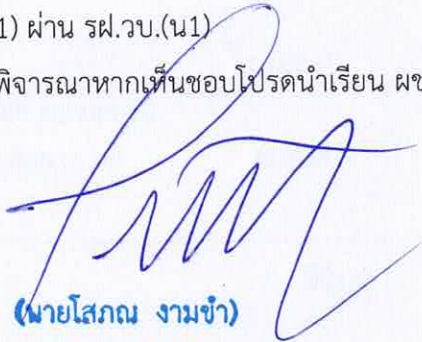 1) ผ่าน รฝ.วบ.(น1)
พิจารณาหากเห็นชอบโปรดนำเรียน ผช
(นายโสภณ งามขำ)